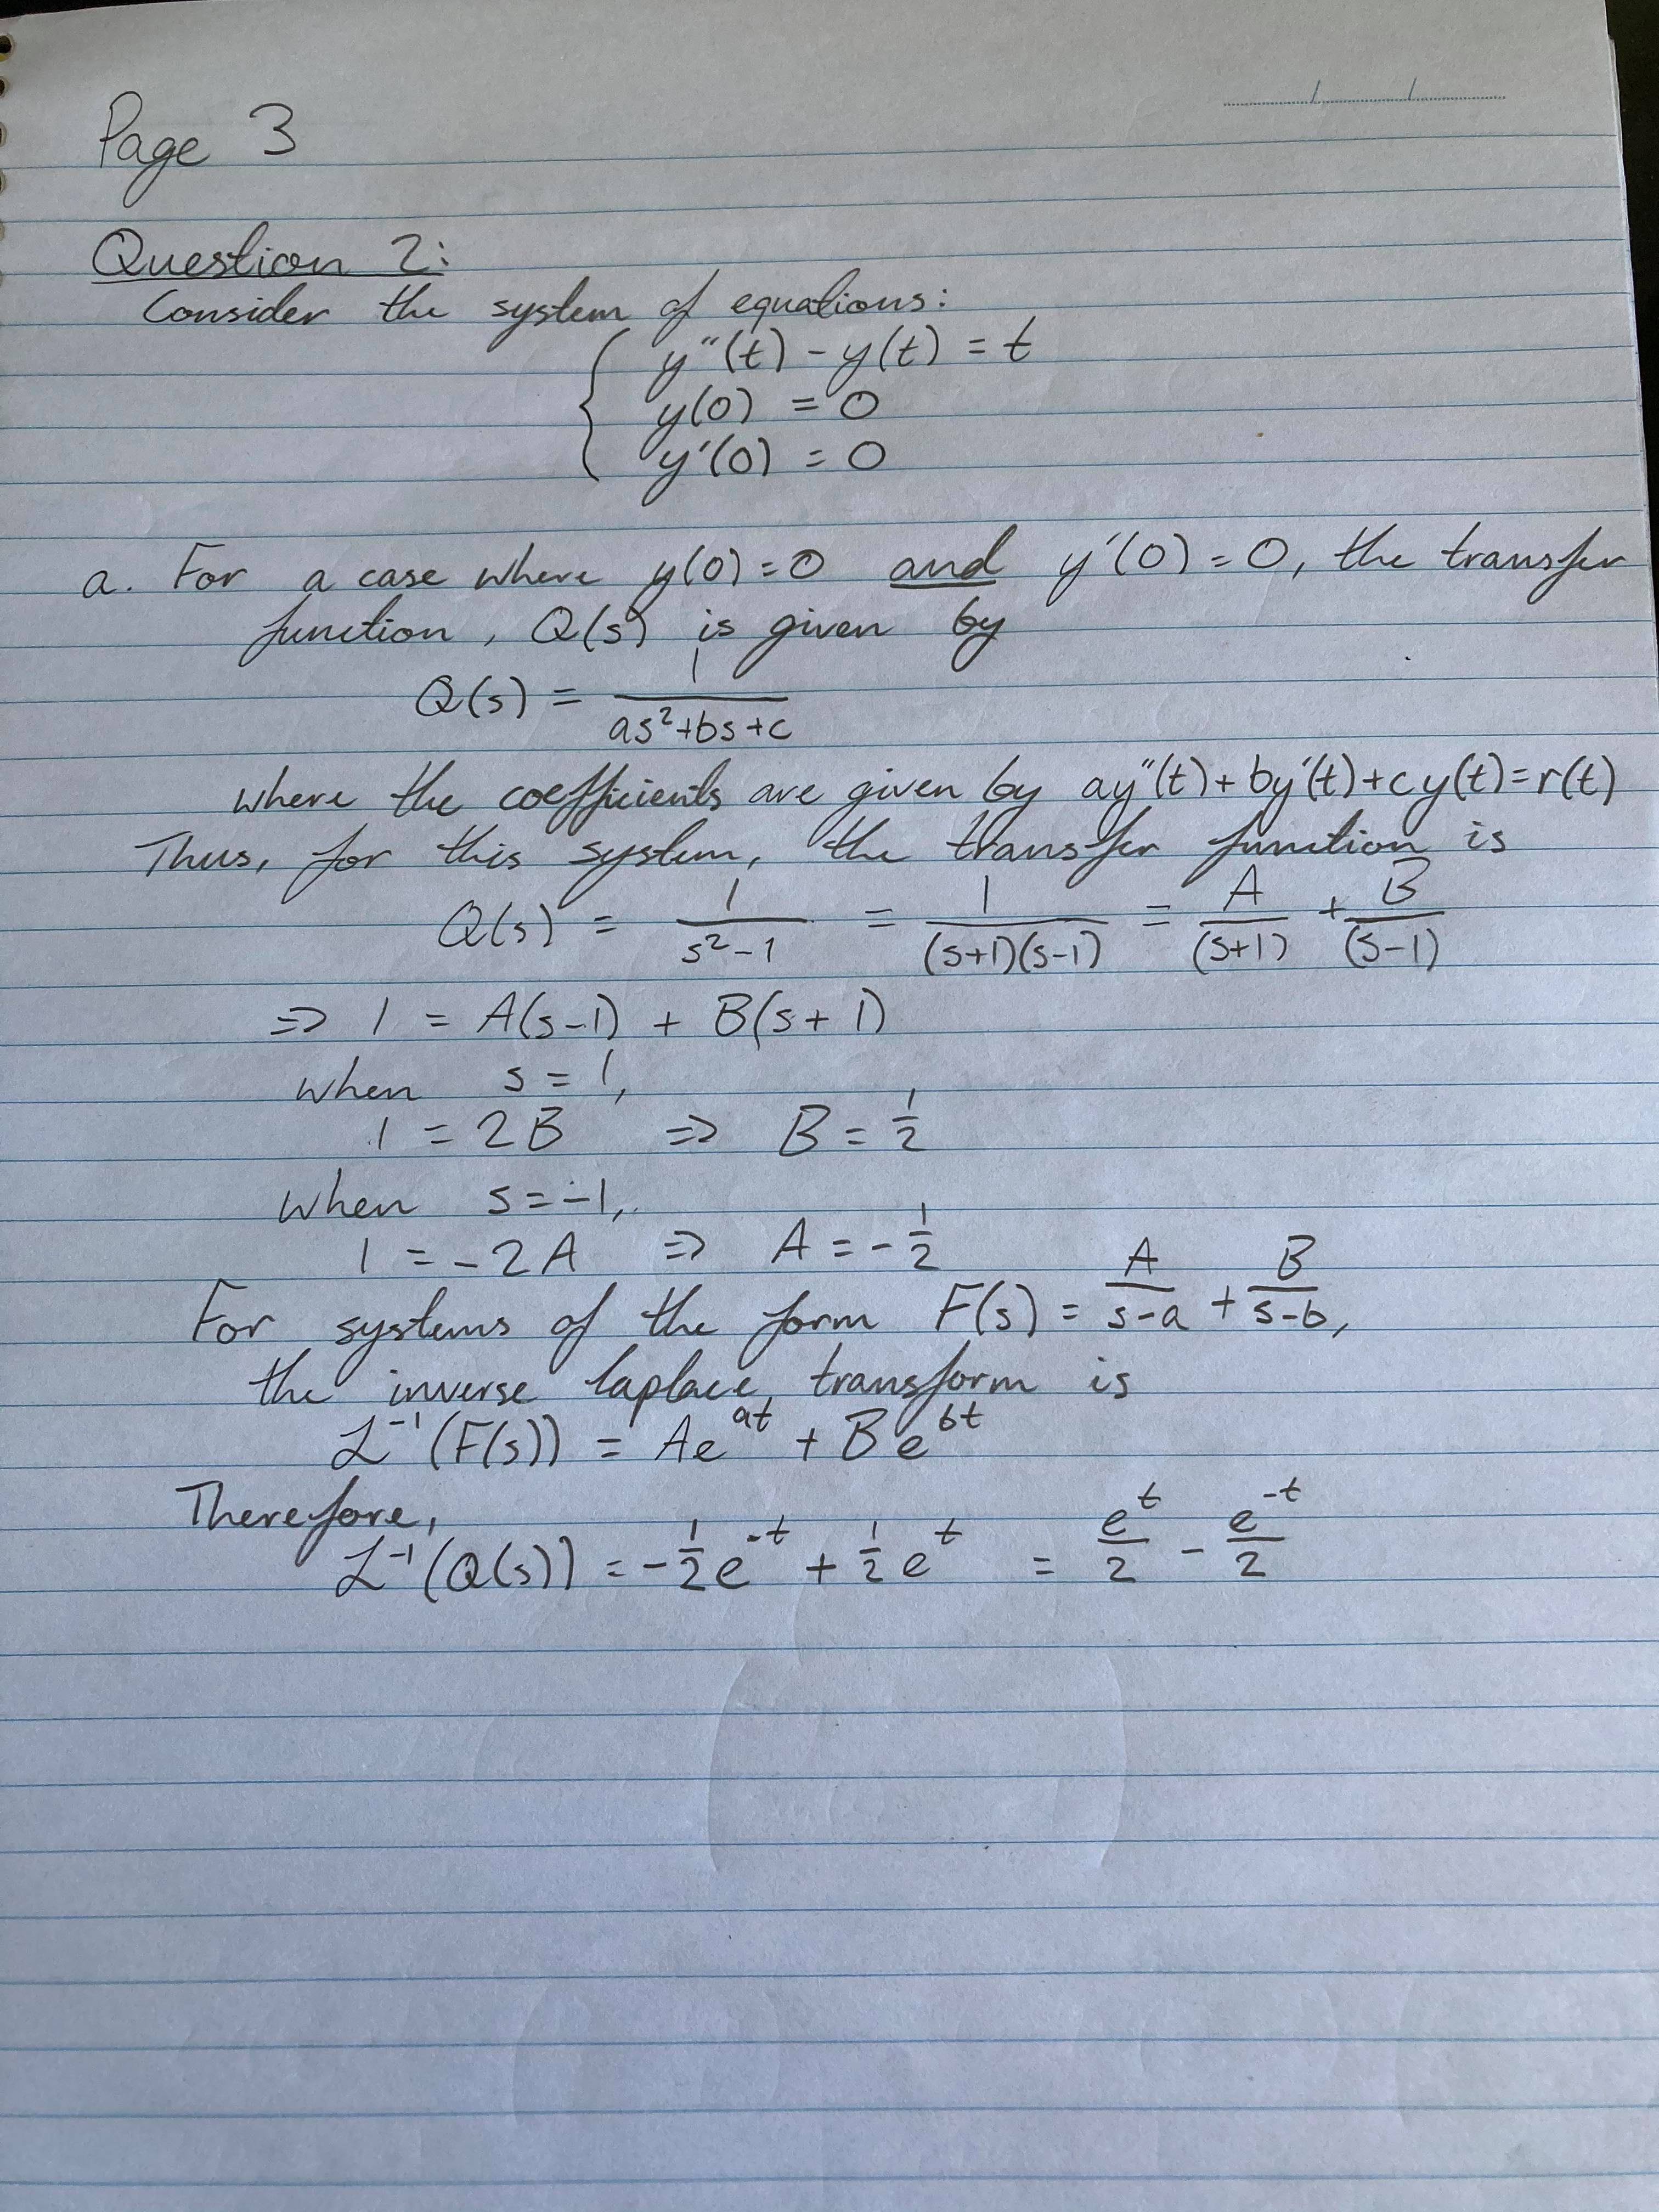 Page 3
Question 2:
Consider the system of equations:
y''(t) - y(t) = t
y(0) = 0
y'(0) = 0
a. For a case where y(0) = 0 and y'(0) = 0, the transfer
function, Q(s) is given by
Q(s) = 1/(as²+bs+c)
where the coefficients are given by ay''(t) + by'(t) + cy(t) = r(t)
Thus, for this system, the transfer function is
Q(s) = 1/(s²-1) = 1/((s+1)(s-1)) = A/(s+1) + B/(s-1)
⇒ 1 = A(s-1) + B(s+1)
when s = 1,
1 = 2B ⇒ B = 1/2
when s = -1,
1 = -2A ⇒ A = -1/2
For systems of the form F(s) = A/(s-a) + B/(s-b),
the inverse laplace transform is
ℒ⁻¹(F(s)) = Ae^(at) + Be^(bt)
Therefore,
ℒ⁻¹(Q(s)) = -1/2 e^(-t) + 1/2 e^t = e^t/2 - e^(-t)/2